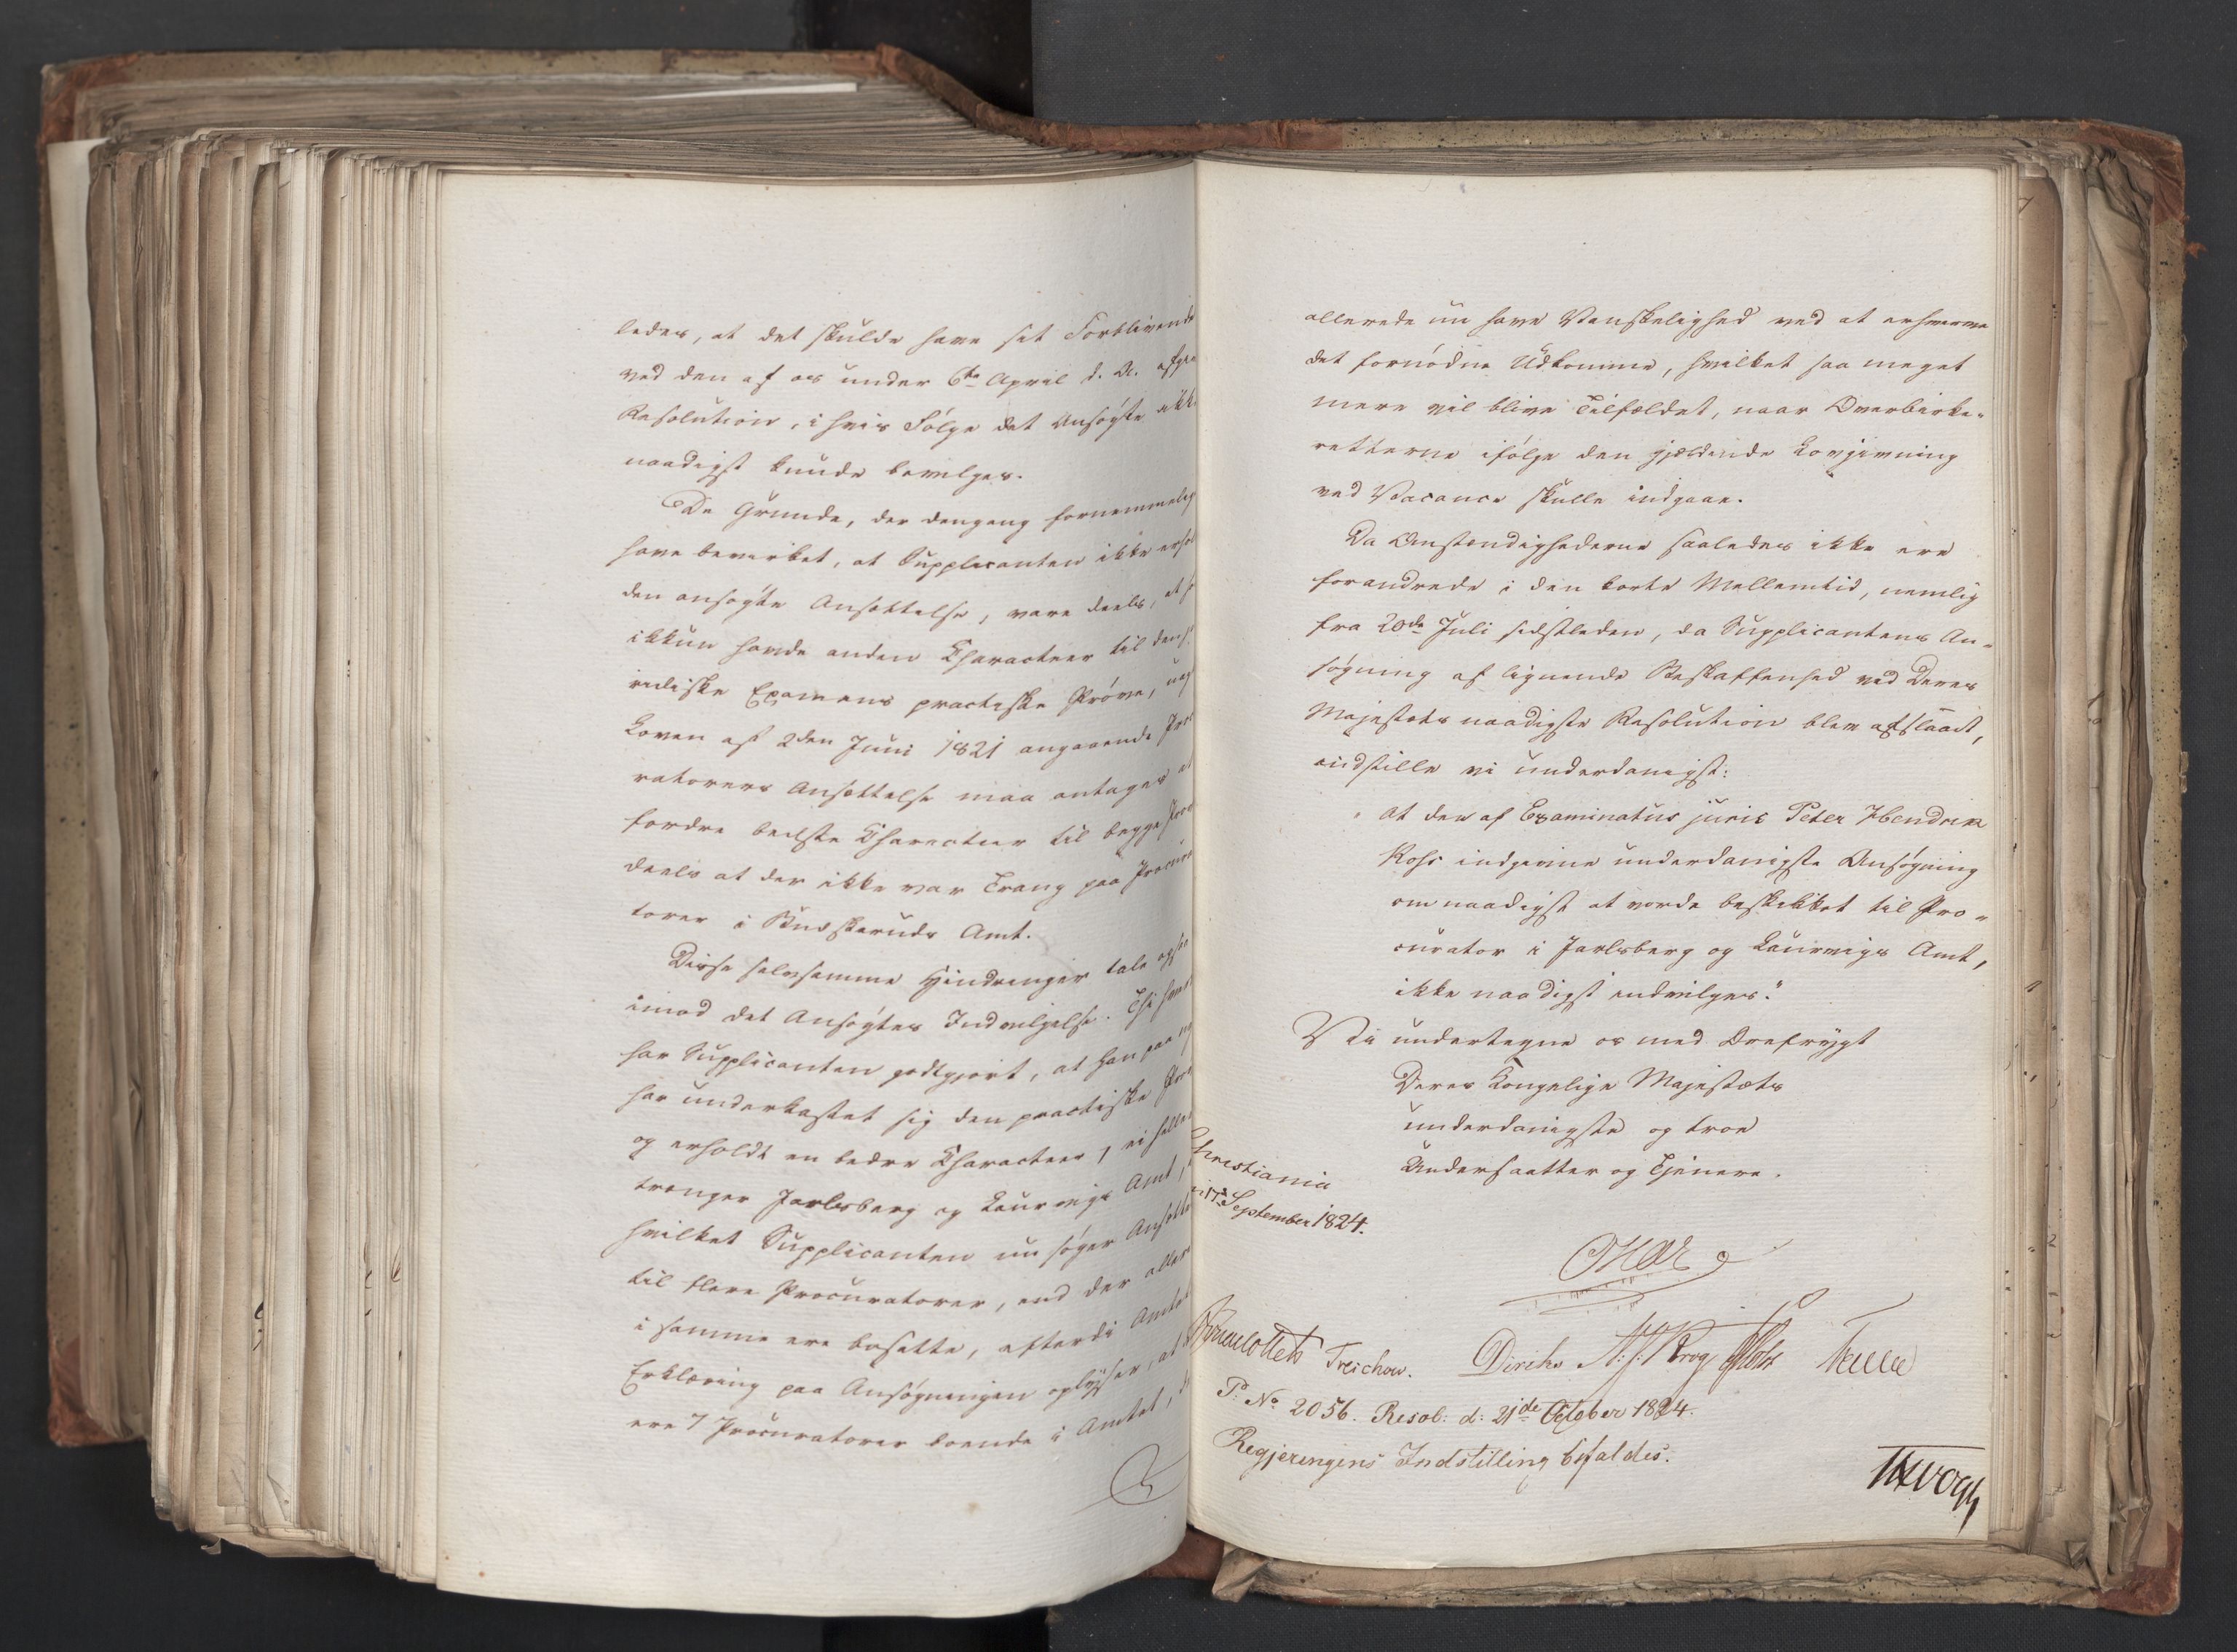 ledes, at det skulde have sit Forblivende
ved den af os under 6te April d. A. afgiv
Resolution, i hvis Følge det Ansøgte ikke
naadigst kunde bevilges.
De Grunde, der dengang fornemmelig
have bevirket, at Supplicanten ikke erhol
den ansøgte Ansættelse, vare deels, at
ikkun havde anden Characteer til den
ridiske Examens practiske Prøve,
Loven af 2den Juni 1821 angaaende Proc
ratorers Ansættelse maa antages at
fordre bedste Characteer til begge Prø
deels at der ikke var Trang paa Procura
torer i Budskeruds Amt.
Disse selvsamme Hindringer tale ogsaa
imod det Ansøgtes Indvilgelse. Thi hver
har Supplicanten godtgjort, at han paa ny
har underkastet sig den practiske Prø
og erholdt en bedre Characteer, ei heller
trænger Jarlsberg og Laurvigs Amt,
hvilket Supplicanten nu søger Ansætte
til flere Procuratorer, end der aller
i samme ere bosatte, efterdi Amtet
Erklæring paa Ansøgningen oplyser, at
ere 7 Procuratorer boende i Amtet,
allerede nu have Vanskelighed ved at erhverve
det fornødne Udkomme, hvilket saa meget
mere vil blive Tilfældet, naar Overbirke-
retterne ifølge den gjældende Lovgivning
ved Vacance skulle indgaae.
Da Omstændighederne saaledes ikke ere
forandrede i den korte Mellemtid, nemlig
fra 20de Juli sidstleden, da Supplicantens An-
søgning af lignende Beskaffenhed ved Deres
Majestæts naadigste Resolution blev afslaaet,
indstille vi underdanigst:
"At den af Examinatus juris Peter Hendrik
Rohs indgivne underdanigste Ansøgning
om naadigst at vorde beskikket til Pro-
curator i Jarlsberg og Laurvigs Amt,
ikke naadigst indvilges."
Vi undertegne os med Ærefrygt
Deres Kongelige Majestæts
underdanigste og troe
Undersaatter og Tjenere.
Christiania
17de September 1824.
Oscar
Treschow. Diriks Krog Holst
P: No 2056. Resol: d: 21de October 1824.
Regjeringens Indstilling bifaldes.